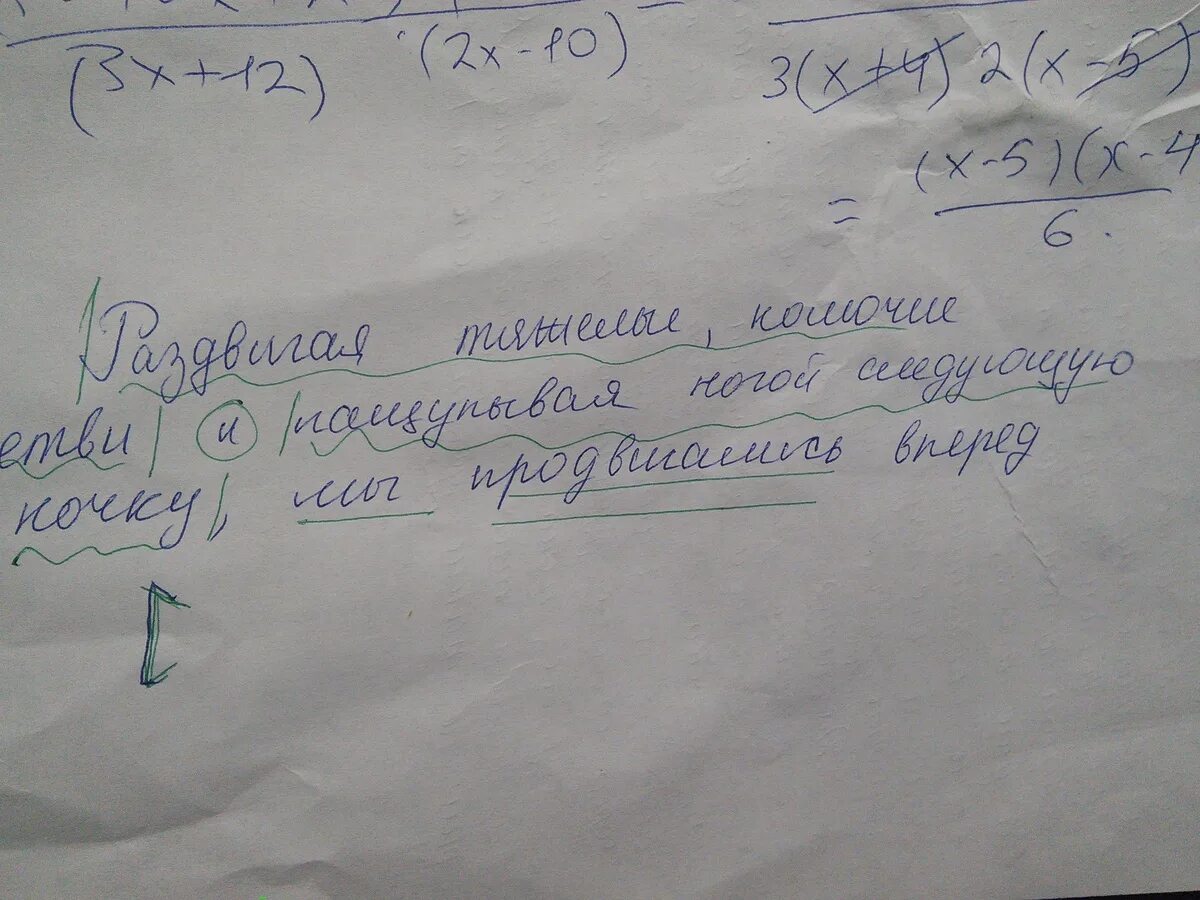 (3x+12) · (2x-10)
3(x+4) 2(x-5)
= (x-5)(x-4
6.
Раздвигая тяжелые, колючие
етви и нащупывая ногой следующую
кочку, мы продвигались вперед